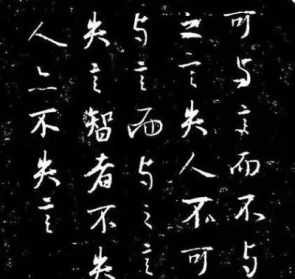 可与言而不与
之言失人不可
与言而与之言
失言智者不失
人亦不失言